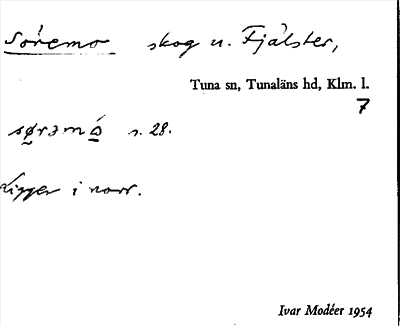 Sóremo skog u. Fjälster,
Tuna sn, Tunaläns hd, Klm. l.
7
sø̰rəmó̱ s. 28.
Ligger i norr.
Ivar Modéer 1954